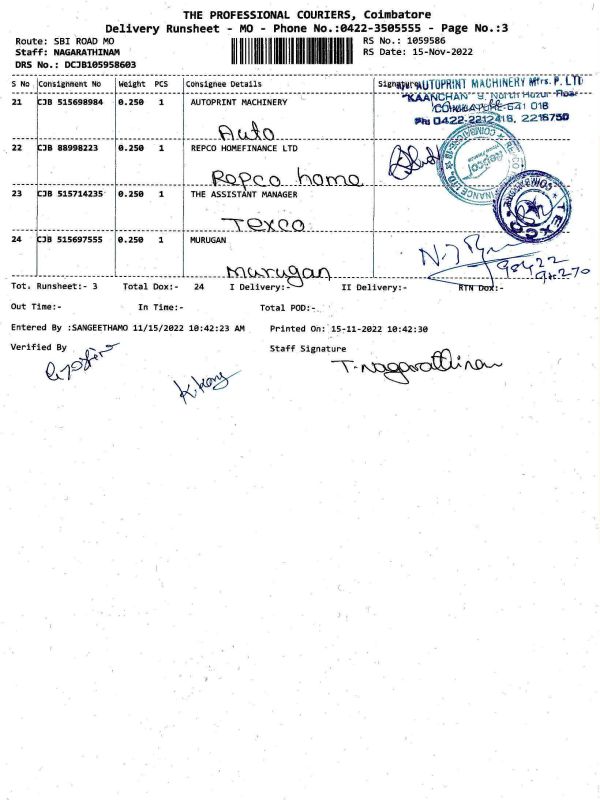 THE PROFESSIONAL COURIERS, Coimbatore
Delivery Runsheet - MO - Phone No.:0422-3505555 - Page No.:3
Route: SBI ROAD MO
Staff: NAGARATHINAM
DRS No.: DCJB105958603
RS No.: 1059586
RS Date: 15-Nov-2022
S No Consignment No Weight PCS Consignee Details Signature
21 CJB 515698984 0.250 1 AUTOPRINT MACHINERY
Auto
AUTOPRINT MACHINERY Mfrs. P. LTD
"KAANCHAN" 9, North Huzur Road
COIMBATORE-641 018
Ph: 0422-2212416, 2216750
22 CJB 88998223 0.250 1 REPCO HOMEFINANCE LTD
Repco home
23 CJB 515714235 0.250 1 THE ASSISTANT MANAGER
Texco
TEXCO
24 CJB 515697555 0.250 1 MURUGAN
Murugan
98422
94270
Tot. Runsheet:- 3 Total Dox:- 24 I Delivery:- II Delivery:- RTN Dox:-
Out Time:- In Time:- Total POD:-
Entered By :SANGEETHAMO 11/15/2022 10:42:23 AM Printed On: 15-11-2022 10:42:30
Verified By Staff Signature
T. Nagarathinam